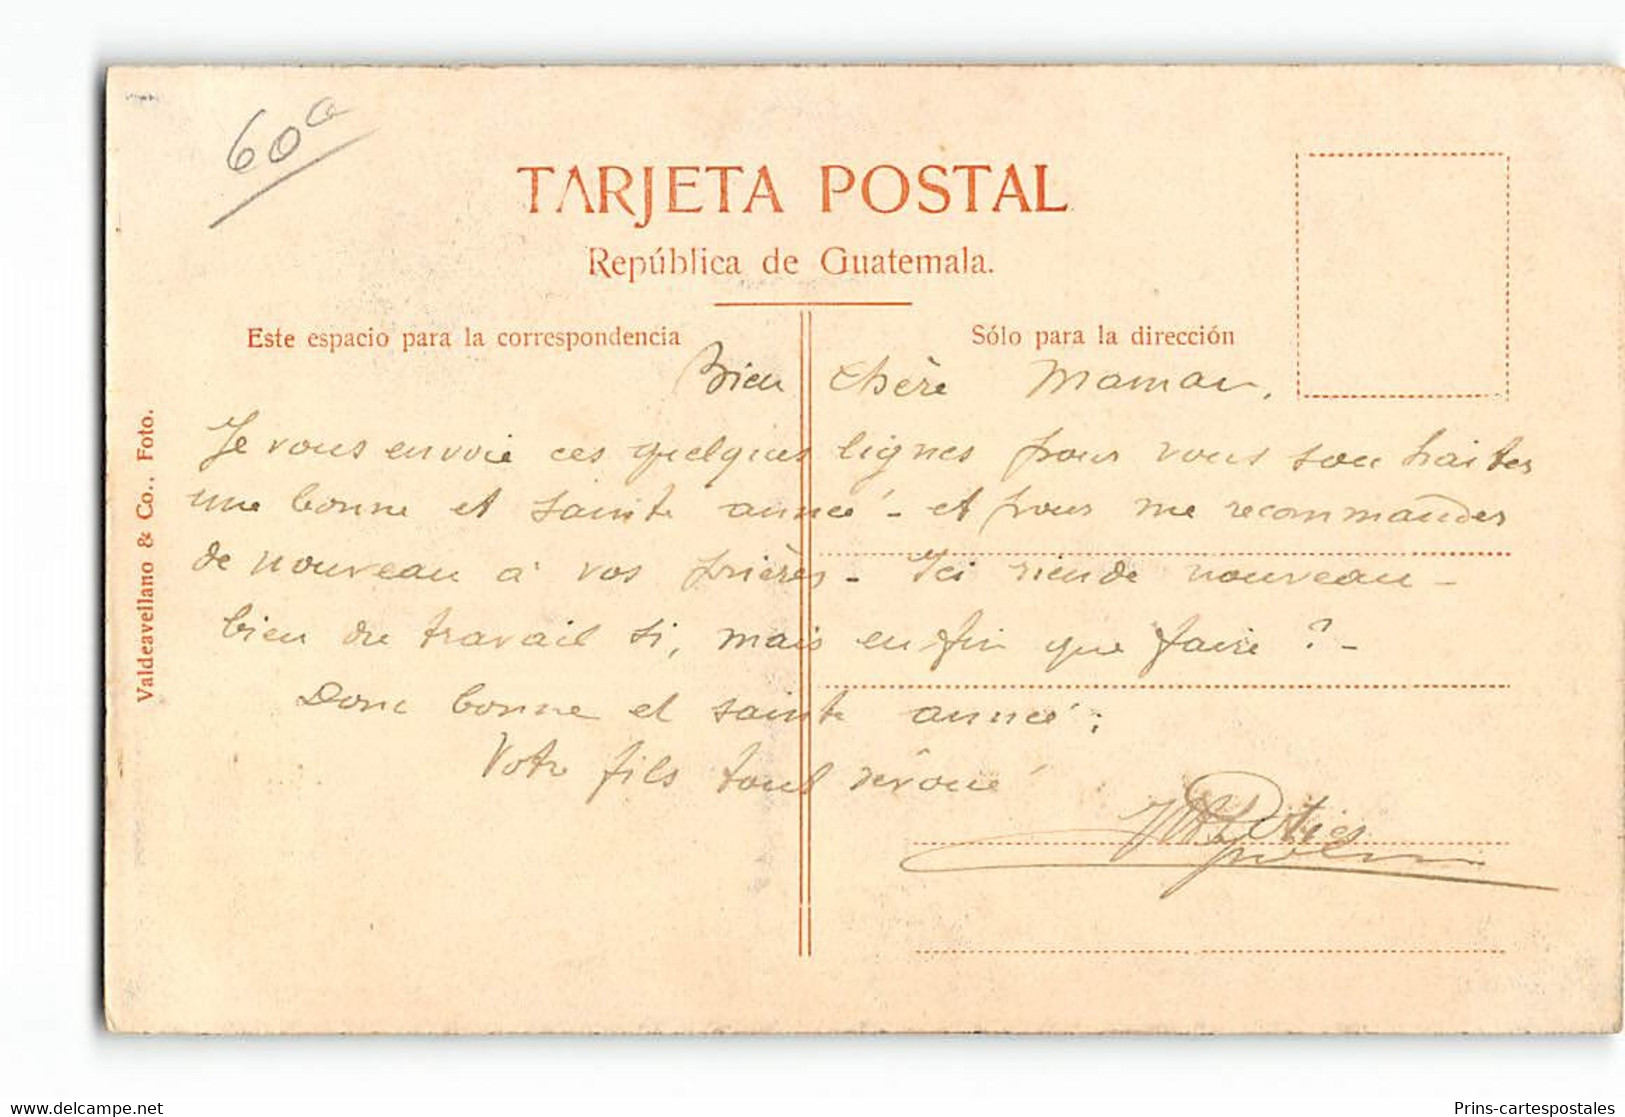 60
TARJETA POSTAL
República de Guatemala.
Este espacio para la correspondencia
Sólo para la dirección
Bien chère Maman,
Je vous envoie ces quelques lignes pour vous souhaiter
une bonne et sainte année - et pour me recommander
de nouveau à vos prières - Ici rien de nouveau -
bien du travail si, mais enfin que faire ? -
Donc bonne et sainte année ;
Votre fils tout dévoué
Valdeavellano & Co., Foto.
www.delcampe.net
Prins-cartespostales